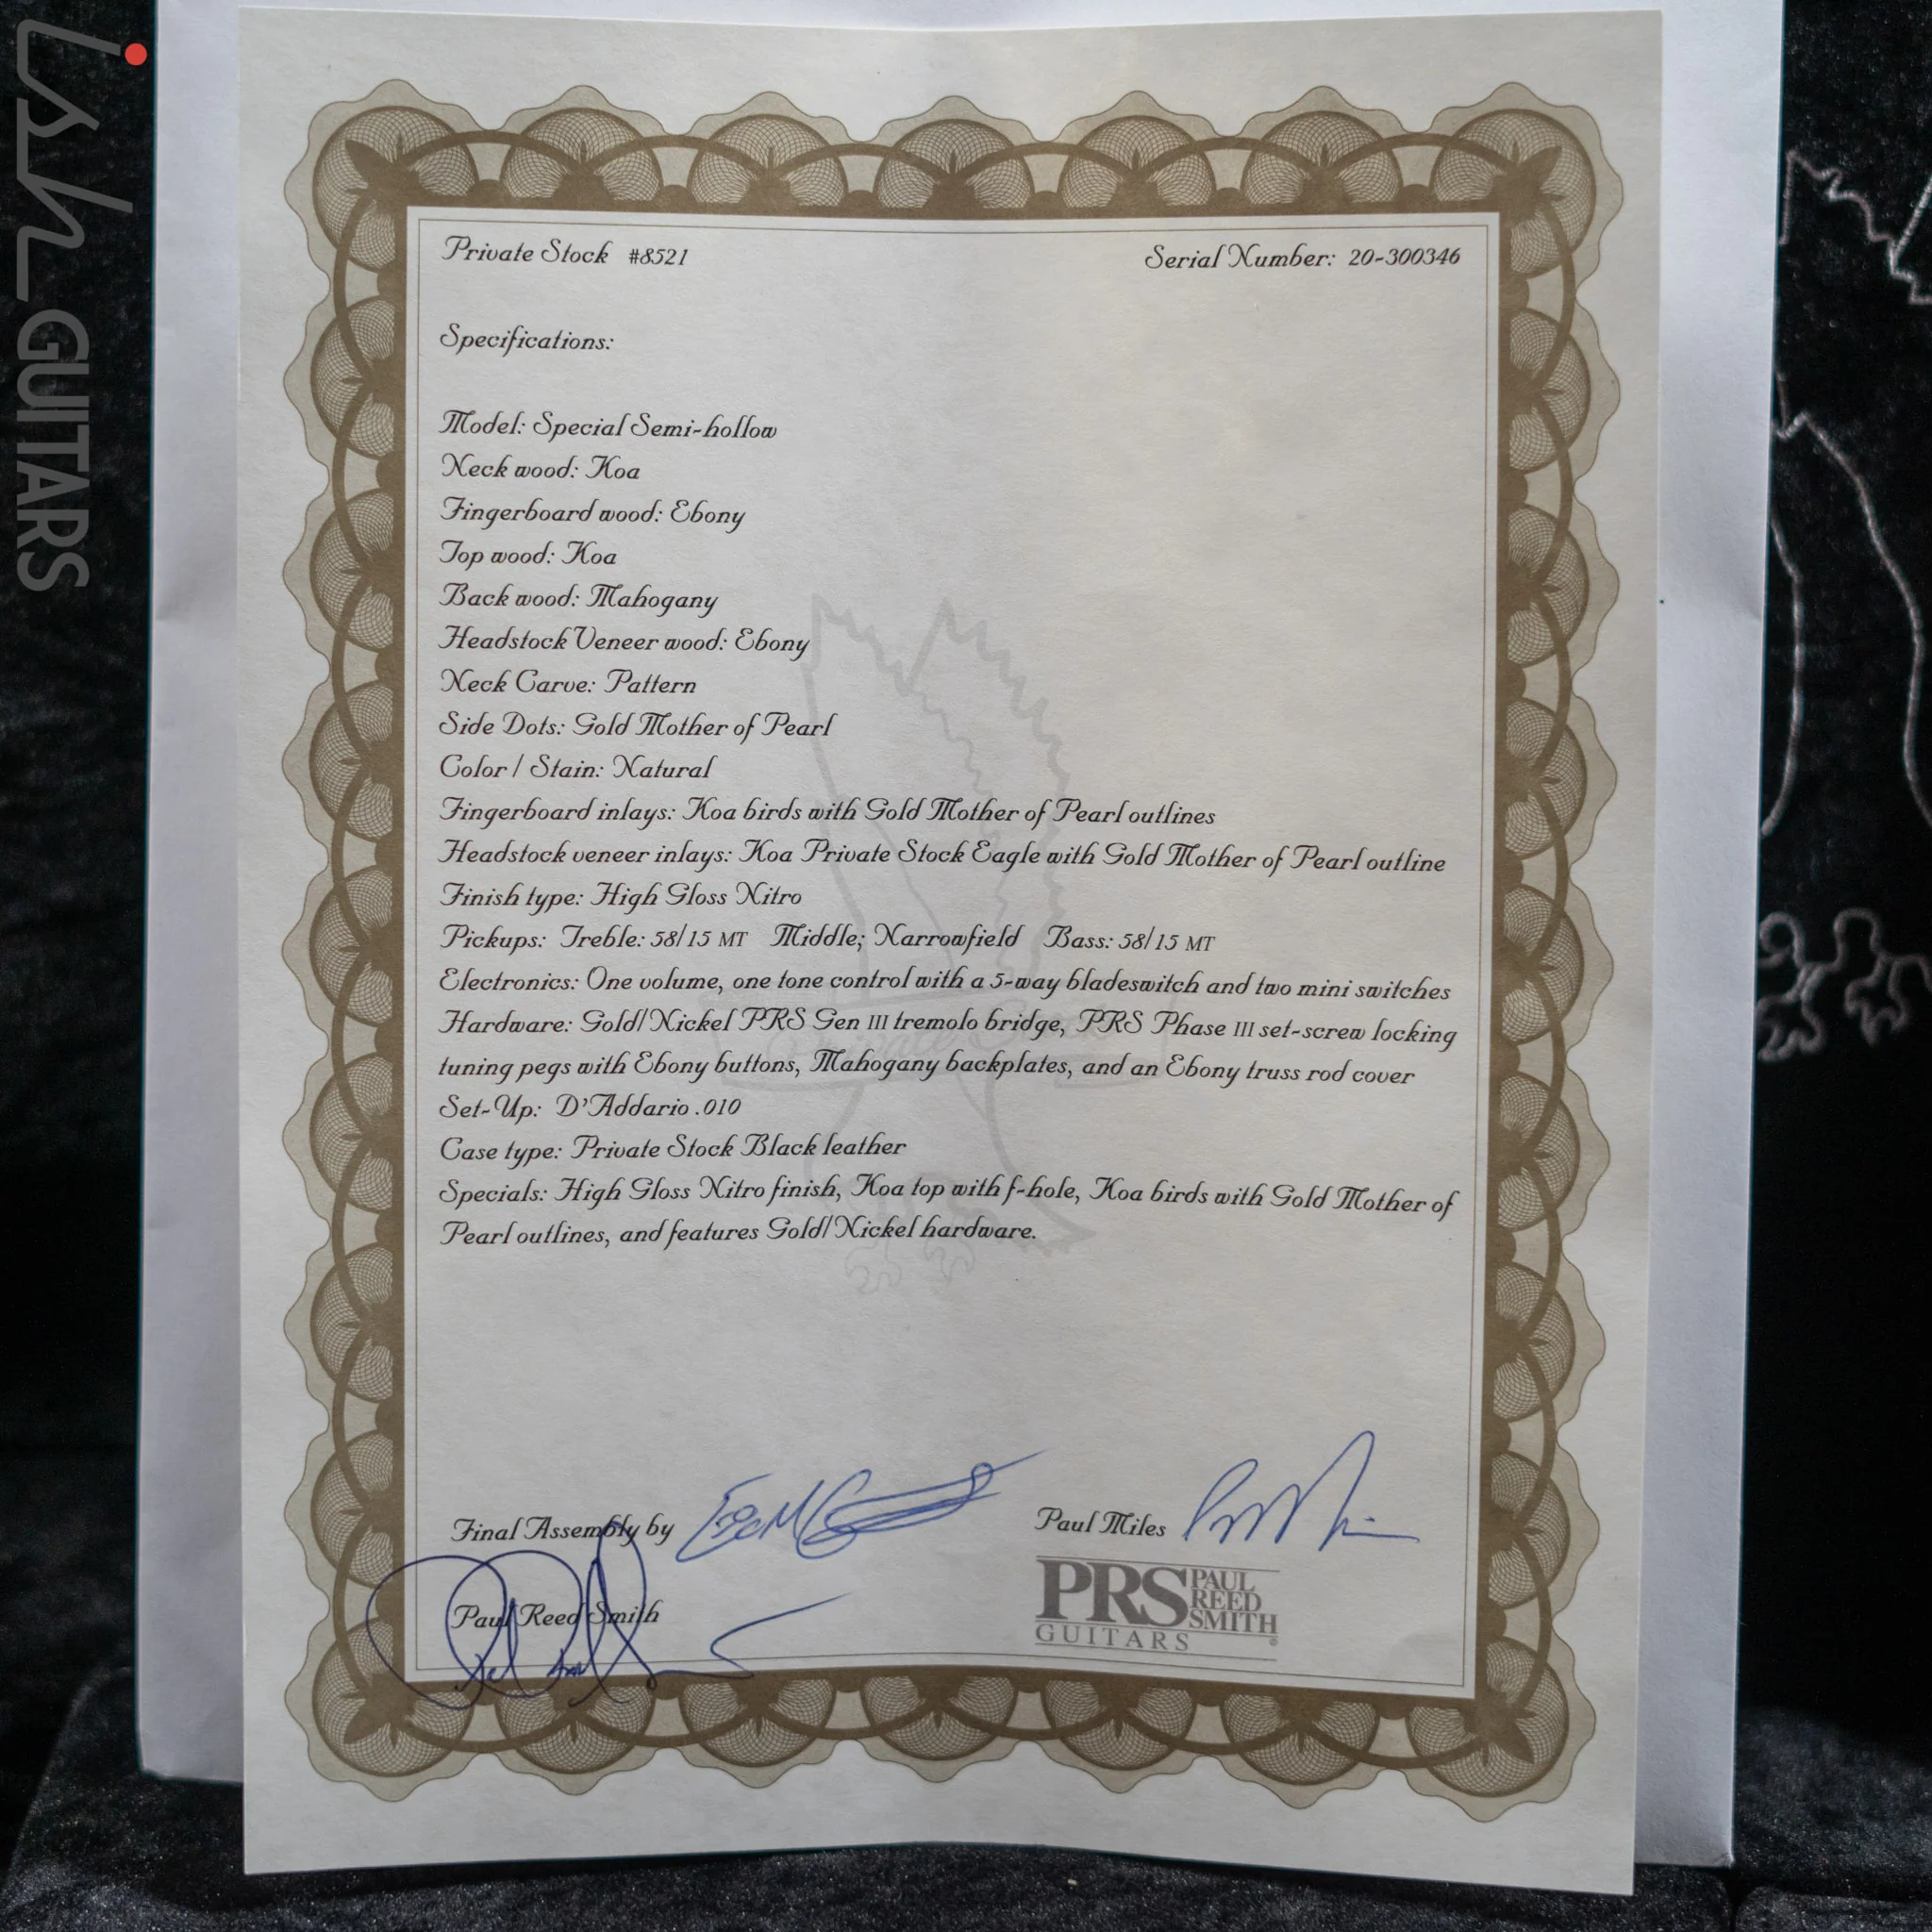 ish GUITARS
Private Stock #8521
Serial Number: 20-300346
Specifications:
Model: Special Semi-hollow
Neck wood: Koa
Fingerboard wood: Ebony
Top wood: Koa
Back wood: Mahogany
Headstock Veneer wood: Ebony
Neck Carve: Pattern
Side Dots: Gold Mother of Pearl
Color / Stain: Natural
Fingerboard inlays: Koa birds with Gold Mother of Pearl outlines
Headstock veneer inlays: Koa Private Stock Eagle with Gold Mother of Pearl outline
Finish type: High Gloss Nitro
Pickups: Treble: 58/15 MT Middle; Narrowfield Bass: 58/15 MT
Electronics: One volume, one tone control with a 5-way bladeswitch and two mini switches
Hardware: Gold/Nickel PRS Gen III tremolo bridge, PRS Phase III set-screw locking
tuning pegs with Ebony buttons, Mahogany backplates, and an Ebony truss rod cover
Set-Up: D'Addario .010
Case type: Private Stock Black leather
Specials: High Gloss Nitro finish, Koa top with f-hole, Koa birds with Gold Mother of
Pearl outlines, and features Gold/Nickel hardware.
Final Assembly by
Paul Miles
Paul Reed Smith
PRS PAUL REED SMITH
GUITARS